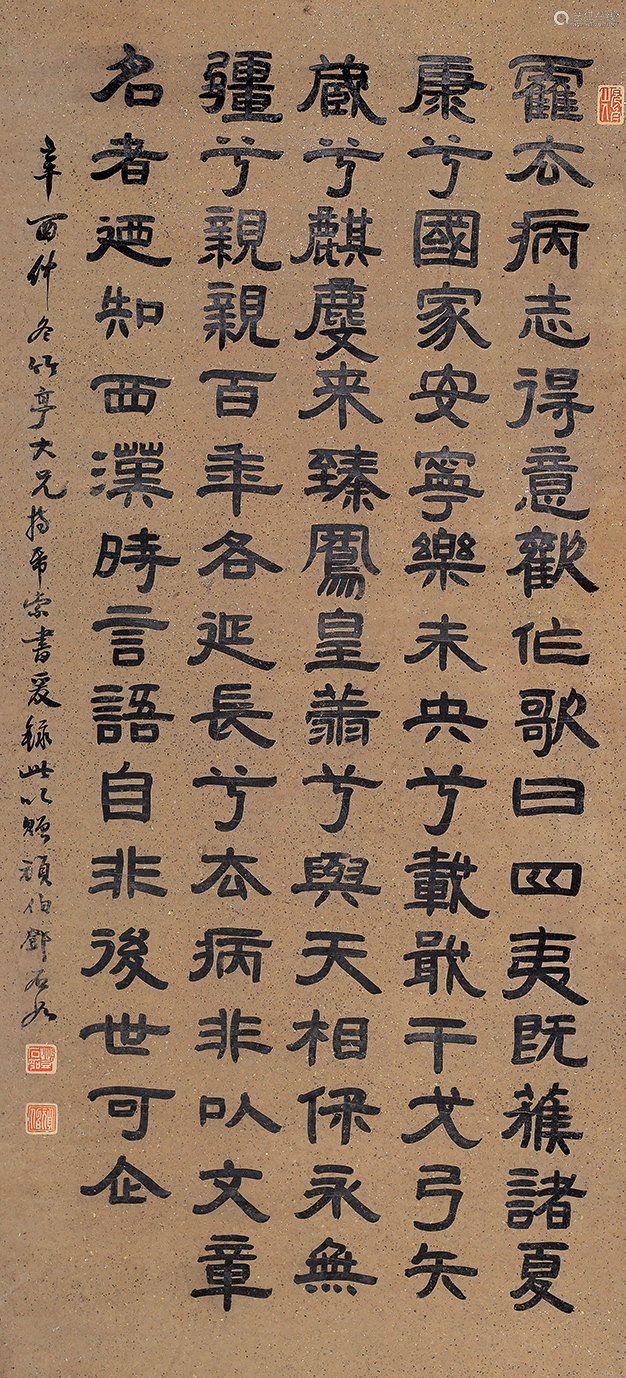 霍去病志得意歡作歌曰四夷既䕶諸夏
康兮國家安寧樂未央兮載戢干戈弓矢
藏兮麒麟来臻鳳皇翔兮與天相保永無
疆兮親親百年各延長兮去病非以文章
名者迺知西漢時言語自非後世可企
辛酉仲冬竹亭大兄持帋索書爰錄此以贈頑伯鄧石如